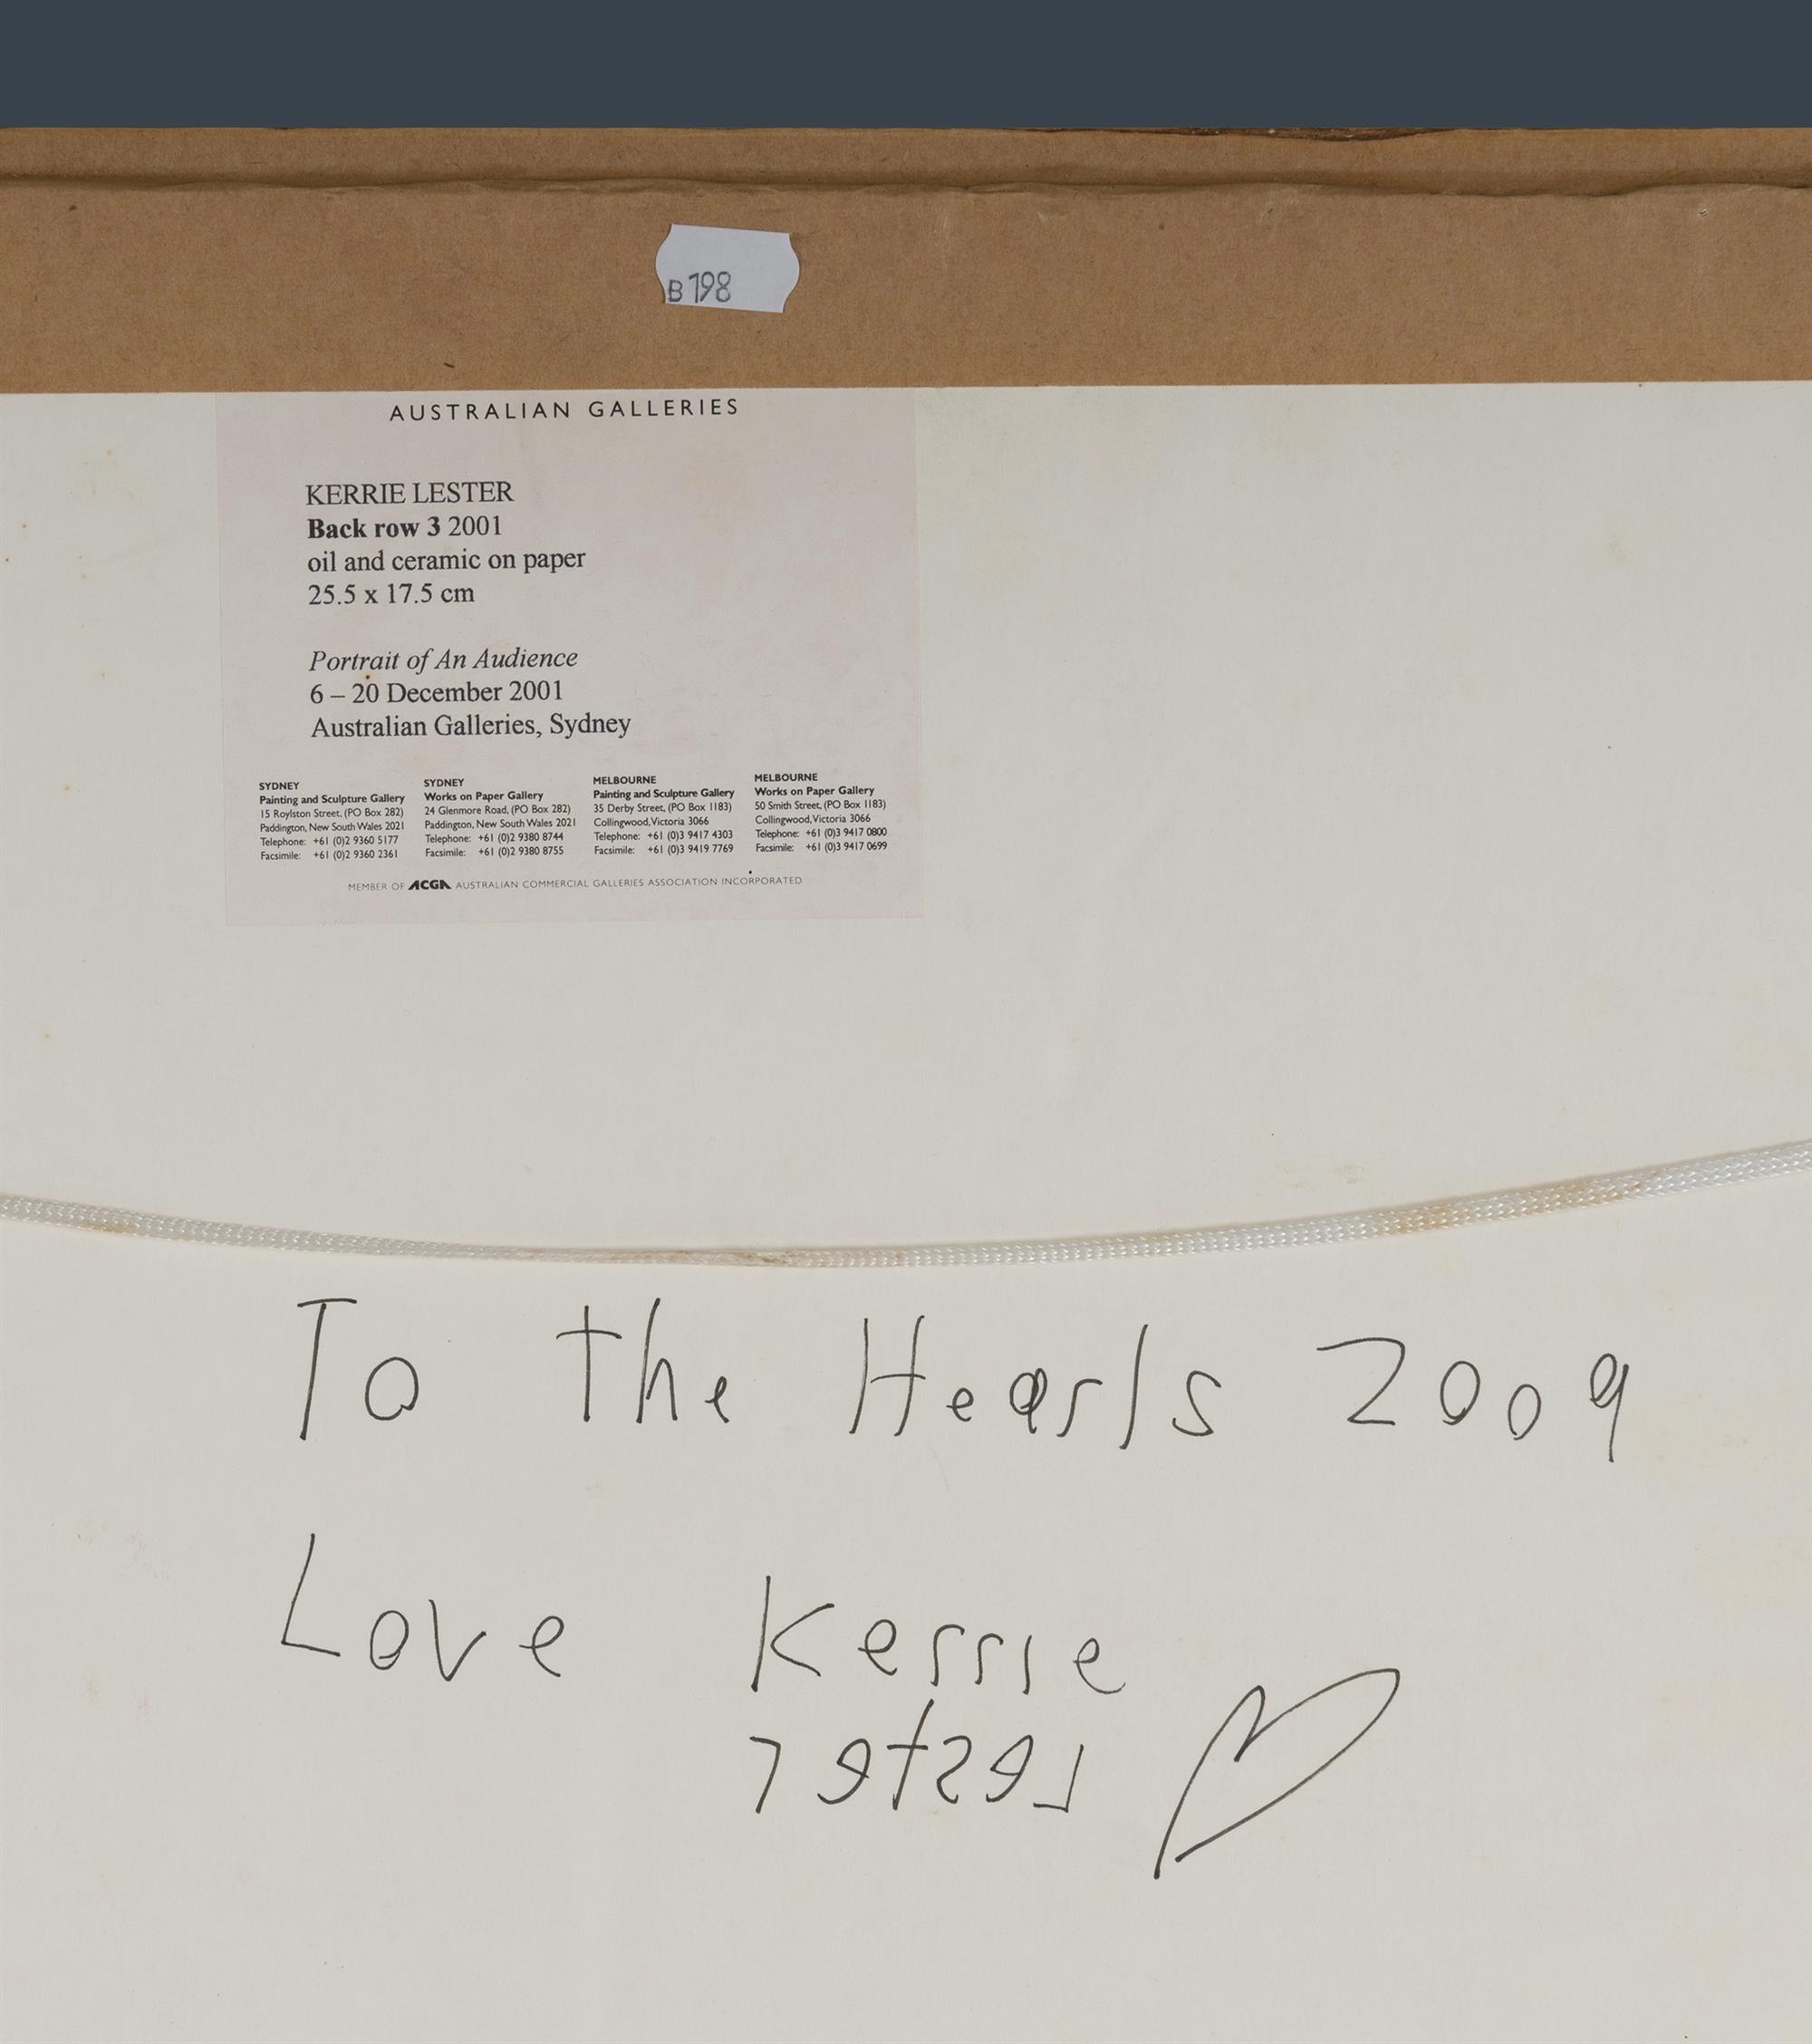 B198
AUSTRALIAN GALLERIES
KERRIE LESTER
Back row 3 2001
oil and ceramic on paper
25.5 x 17.5 cm
Portrait of An Audience
6 – 20 December 2001
Australian Galleries, Sydney
SYDNEY
Painting and Sculpture Gallery
15 Roylston Street, (PO Box 282)
Paddington, New South Wales 2021
Telephone: +61 (0)2 9360 5177
Facsimile: +61 (0)2 9360 2361
SYDNEY
Works on Paper Gallery
24 Glenmore Road, (PO Box 282)
Paddington, New South Wales 2021
Telephone: +61 (0)2 9380 8744
Facsimile: +61 (0)2 9380 8755
MELBOURNE
Painting and Sculpture Gallery
35 Derby Street, (PO Box 1183)
Collingwood, Victoria 3066
Telephone: +61 (0)3 9417 4303
Facsimile: +61 (0)3 9419 7769
MELBOURNE
Works on Paper Gallery
50 Smith Street, (PO Box 1183)
Collingwood, Victoria 3066
Telephone: +61 (0)3 9417 0800
Facsimile: +61 (0)3 9417 0699
MEMBER OF ACGA AUSTRALIAN COMMERCIAL GALLERIES ASSOCIATION INCORPORATED
To the Hearls 2009
Love Kerrie
Lester